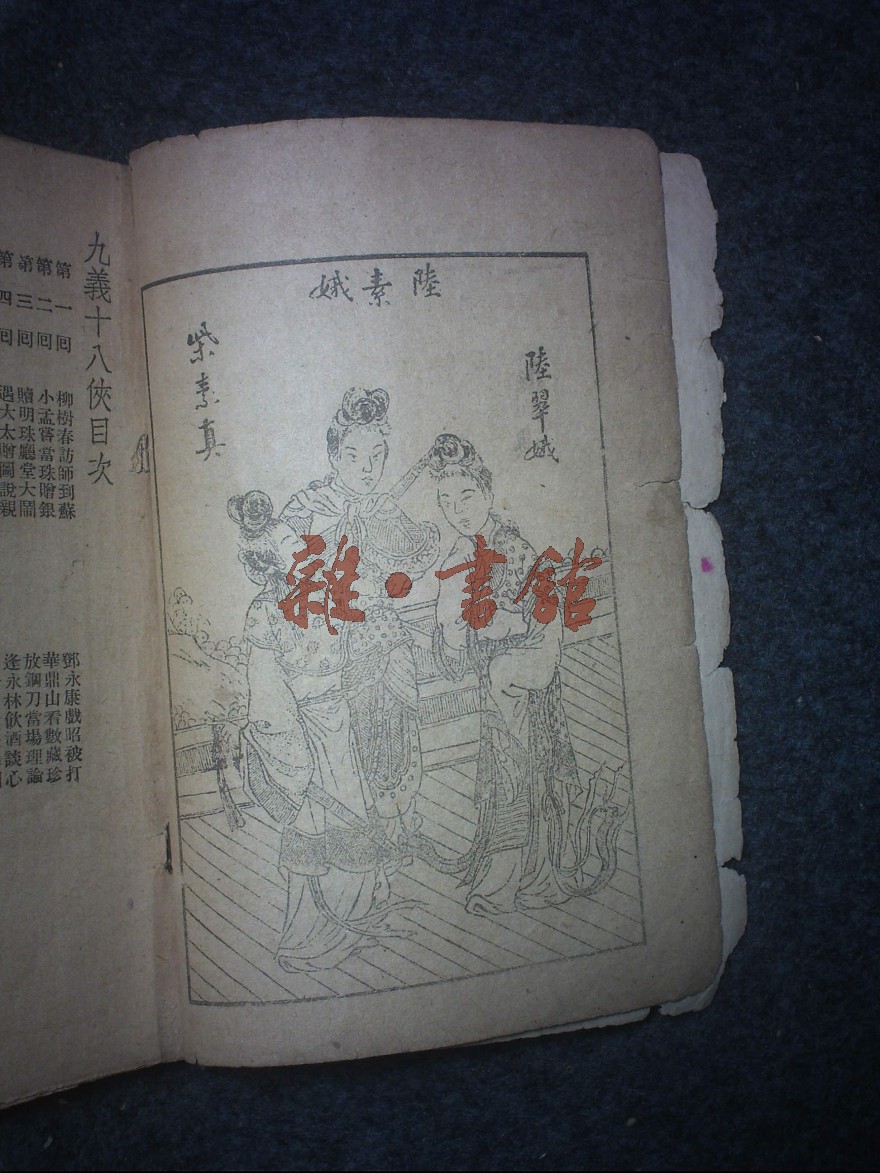 陸素娥
陸翠娥
柴素真
雜·書館
九義十八俠目次
第一回 柳樹春訪師到蘇 鄧永康戲昭被打
第二回 小孟嘗當珠贈銀 華鼎山看數藏珍
第三回 贖明珠廳堂大鬧 放鋼刀當場理論
第四回 遇大太贈圖說親 逢永林飲酒談心